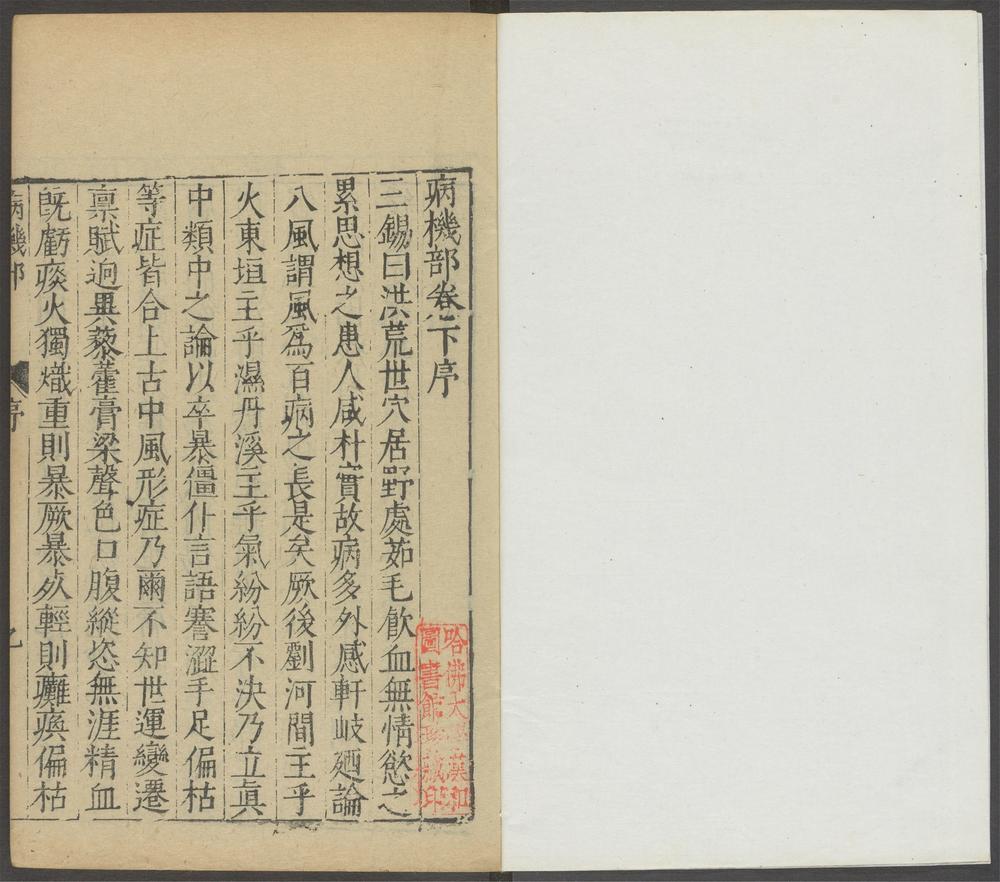 病機部卷下序
三錫曰洪荒世穴居野處茹毛飮血無情慾之
累思想之患人咸朴實故病多外感軒岐廼論
八風謂風爲百病之長是矣厥後劉河間主乎
火東垣主乎濕丹溪主乎氣紛紛不決乃立眞
中類中之論以卒暴僵仆言語蹇澀手足偏枯
等症皆合上古中風形症乃爾不知世運變遷
禀賦逈異藜藿膏梁聲色口腹縱恣無涯精血
旣虧痰火獨熾重則暴厥暴死輕則癱瘓偏枯
病機部
序
哈佛大漢和
圖書館藏印